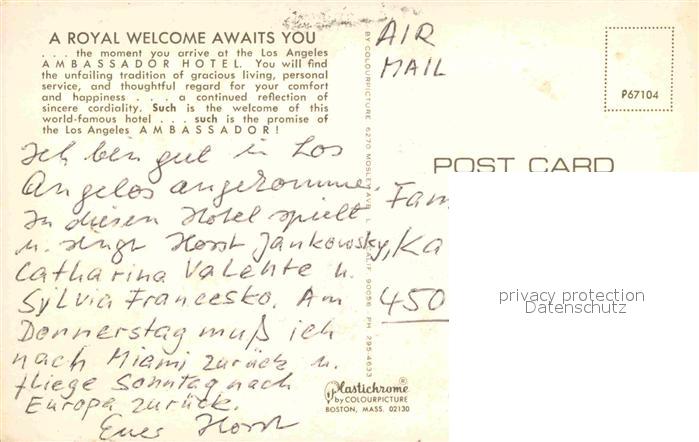 A ROYAL WELCOME AWAITS YOU
. . . the moment you arrive at the Los Angeles
AMBASSADOR HOTEL. You will find
the unfailing tradition of gracious living, personal
service, and thoughtful regard for your comfort
and happiness . . . a continued reflection of
sincere cordiality. Such is the welcome of this
world-famous hotel . . . such is the promise of
the Los Angeles AMBASSADOR!
Ich bin gut in Los
Angelos angekommen.
In diesen Hotel spielt
u. singt Horst Jankowsky,
Catharina Valente u.
Sylvia Francesko. Am
Donnerstag muß ich
nach Miami zurück u.
fliege Sonntag nach
Europa zurück.
Euer Horst
BY COLOURPICTURE 6270 MOSLEY AVE. L. CALIF. 90056 PH 295-4633
Plastichrome®
by COLOURPICTURE
BOSTON, MASS. 02130
AIR
MAIL
P67104
POST CARD
Fam
Ka
450
privacy protection
Datenschutz